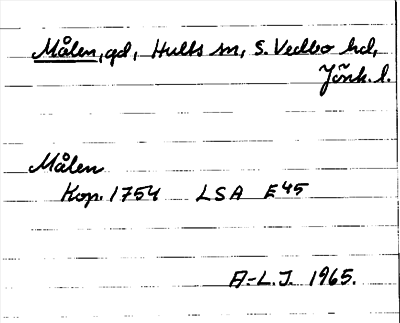 Målen, gd, Hults sn, S. Vedbo hd,
Jönk. l.
Målen
Kop. 1754 LSA E45
A-L.J. 1965.